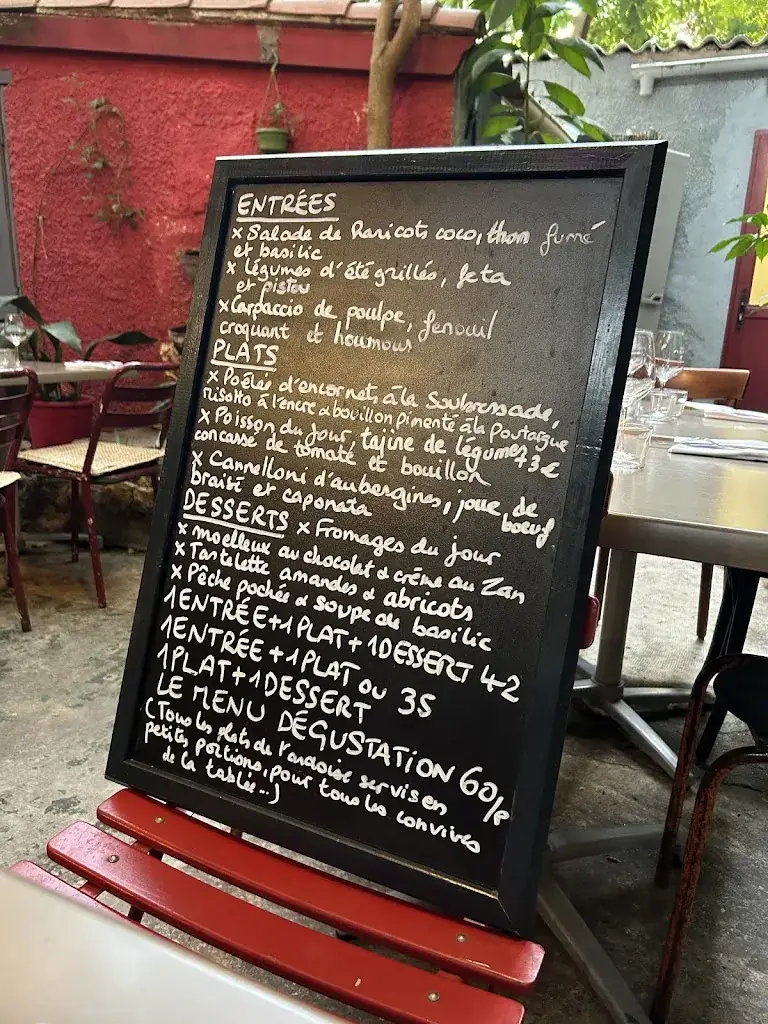 ENTRÉES
x Salade de Haricots coco, thon fumé
et basilic
x légumes d'été grillés, feta
et pistou
x Carpaccio de poulpe, fenouil
croquant et houmous
PLATS
x Poêlée d'encornets à la Soubressade,
risotto à l'encre & bouillon pimenté à la Poutargue
x Poisson du jour, tajine de légumes +3€
concassé de tomate et bouillon
x Cannelloni d'aubergines, joue de boeuf
braisé et caponata
DESSERTS x Fromages du jour
x moelleux au chocolat & crème au Zan
x Tartelette amandes & abricots
x Pêche pochée & soupe de basilic
1ENTRÉE+1PLAT+1DESSERT 42
1ENTRÉE+1PLAT OU 35
1PLAT+1DESSERT
LE MENU DÉGUSTATION 60/P
(Tous les plats de l'ardoise servis en
petites portions, pour tous les convives
de la tablée...)